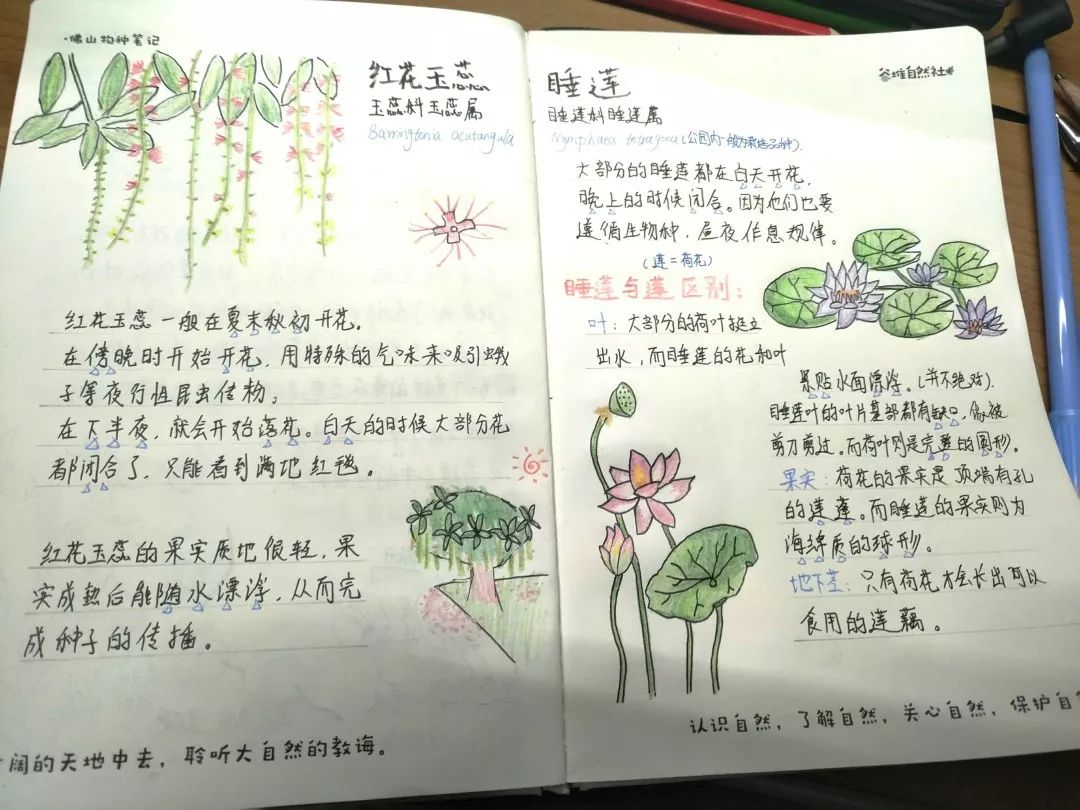 ·佛山物种笔记
红花玉蕊
玉蕊科玉蕊属
Barringtonia acutangula
红花玉蕊一般在夏末秋初开花。
在傍晚时开始开花,用特殊的气味来吸引蛾
子等夜行性昆虫传粉。
在下半夜,就会开始落花。白天的时候大部分花
都闭合了,只能看到满地红毯。
红花玉蕊的果实质地很轻,果
实成熟后能随水漂浮,从而完
成种子的传播。
阔的天地中去,聆听大自然的教诲。
自然社
睡莲
睡莲科睡莲属
Nymphaea tetragona (公园内一般为栽培品种).
大部分的睡莲都在白天开花,
晚上的时候闭合。因为他们也要
遵循生物种,昼夜作息规律。
(莲=荷花)
睡莲与莲区别:
叶:大部分的荷叶挺立
出水,而睡莲的花和叶
紧贴水面漂浮。(并不绝对).
睡莲叶的叶片基部都有缺口,像被
剪刀剪过。而荷叶则是完整的圆形。
果实:荷花的果实是顶端有孔
的莲蓬。而睡莲的果实则为
海绵质的球形。
地下茎:只有荷花才会长出可以
食用的莲藕。
认识自然,了解自然,关心自然,保护自